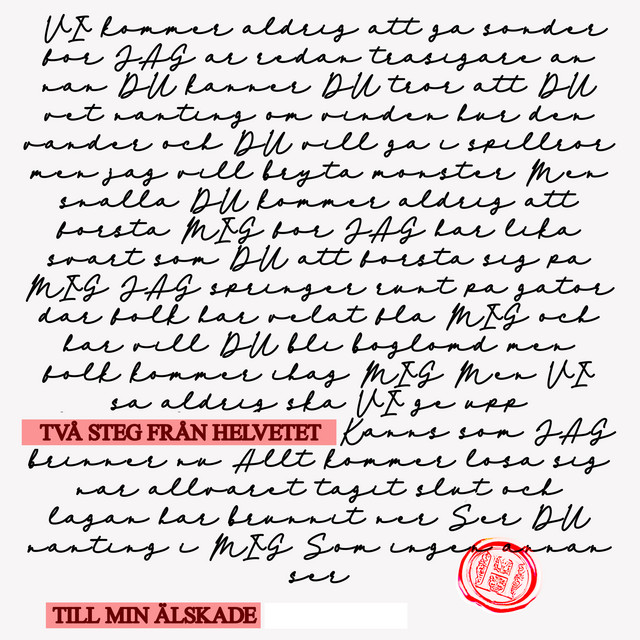 VI kommer aldrig att ga sonder
bor JAG ar redan trasigare an
nan DU kanner DU tror att DU
vet nanting om vinden hur den
vander och DU vill ga i spillror
men jag vill bryta monster Men
snalla DU kommer aldrig att
borsta MIG bor JAG har lika
svart som DU att borsta sig pa
MIG JAG springer runt pa gator
dar bolk har velat bla MIG och
har vill DU bli boglomd men
bolk kommer ihag MIG Men VI
sa aldrig ska VI ge upp
TVÅ STEG FRÅN HELVETET Kanns som JAG
brinner nu Allt kommer losa sig
nar allvaret tagit slut och
lagan har brunnit ner Ser DU
nanting i MIG Som ingen annan
ser
TILL MIN ÄLSKADE